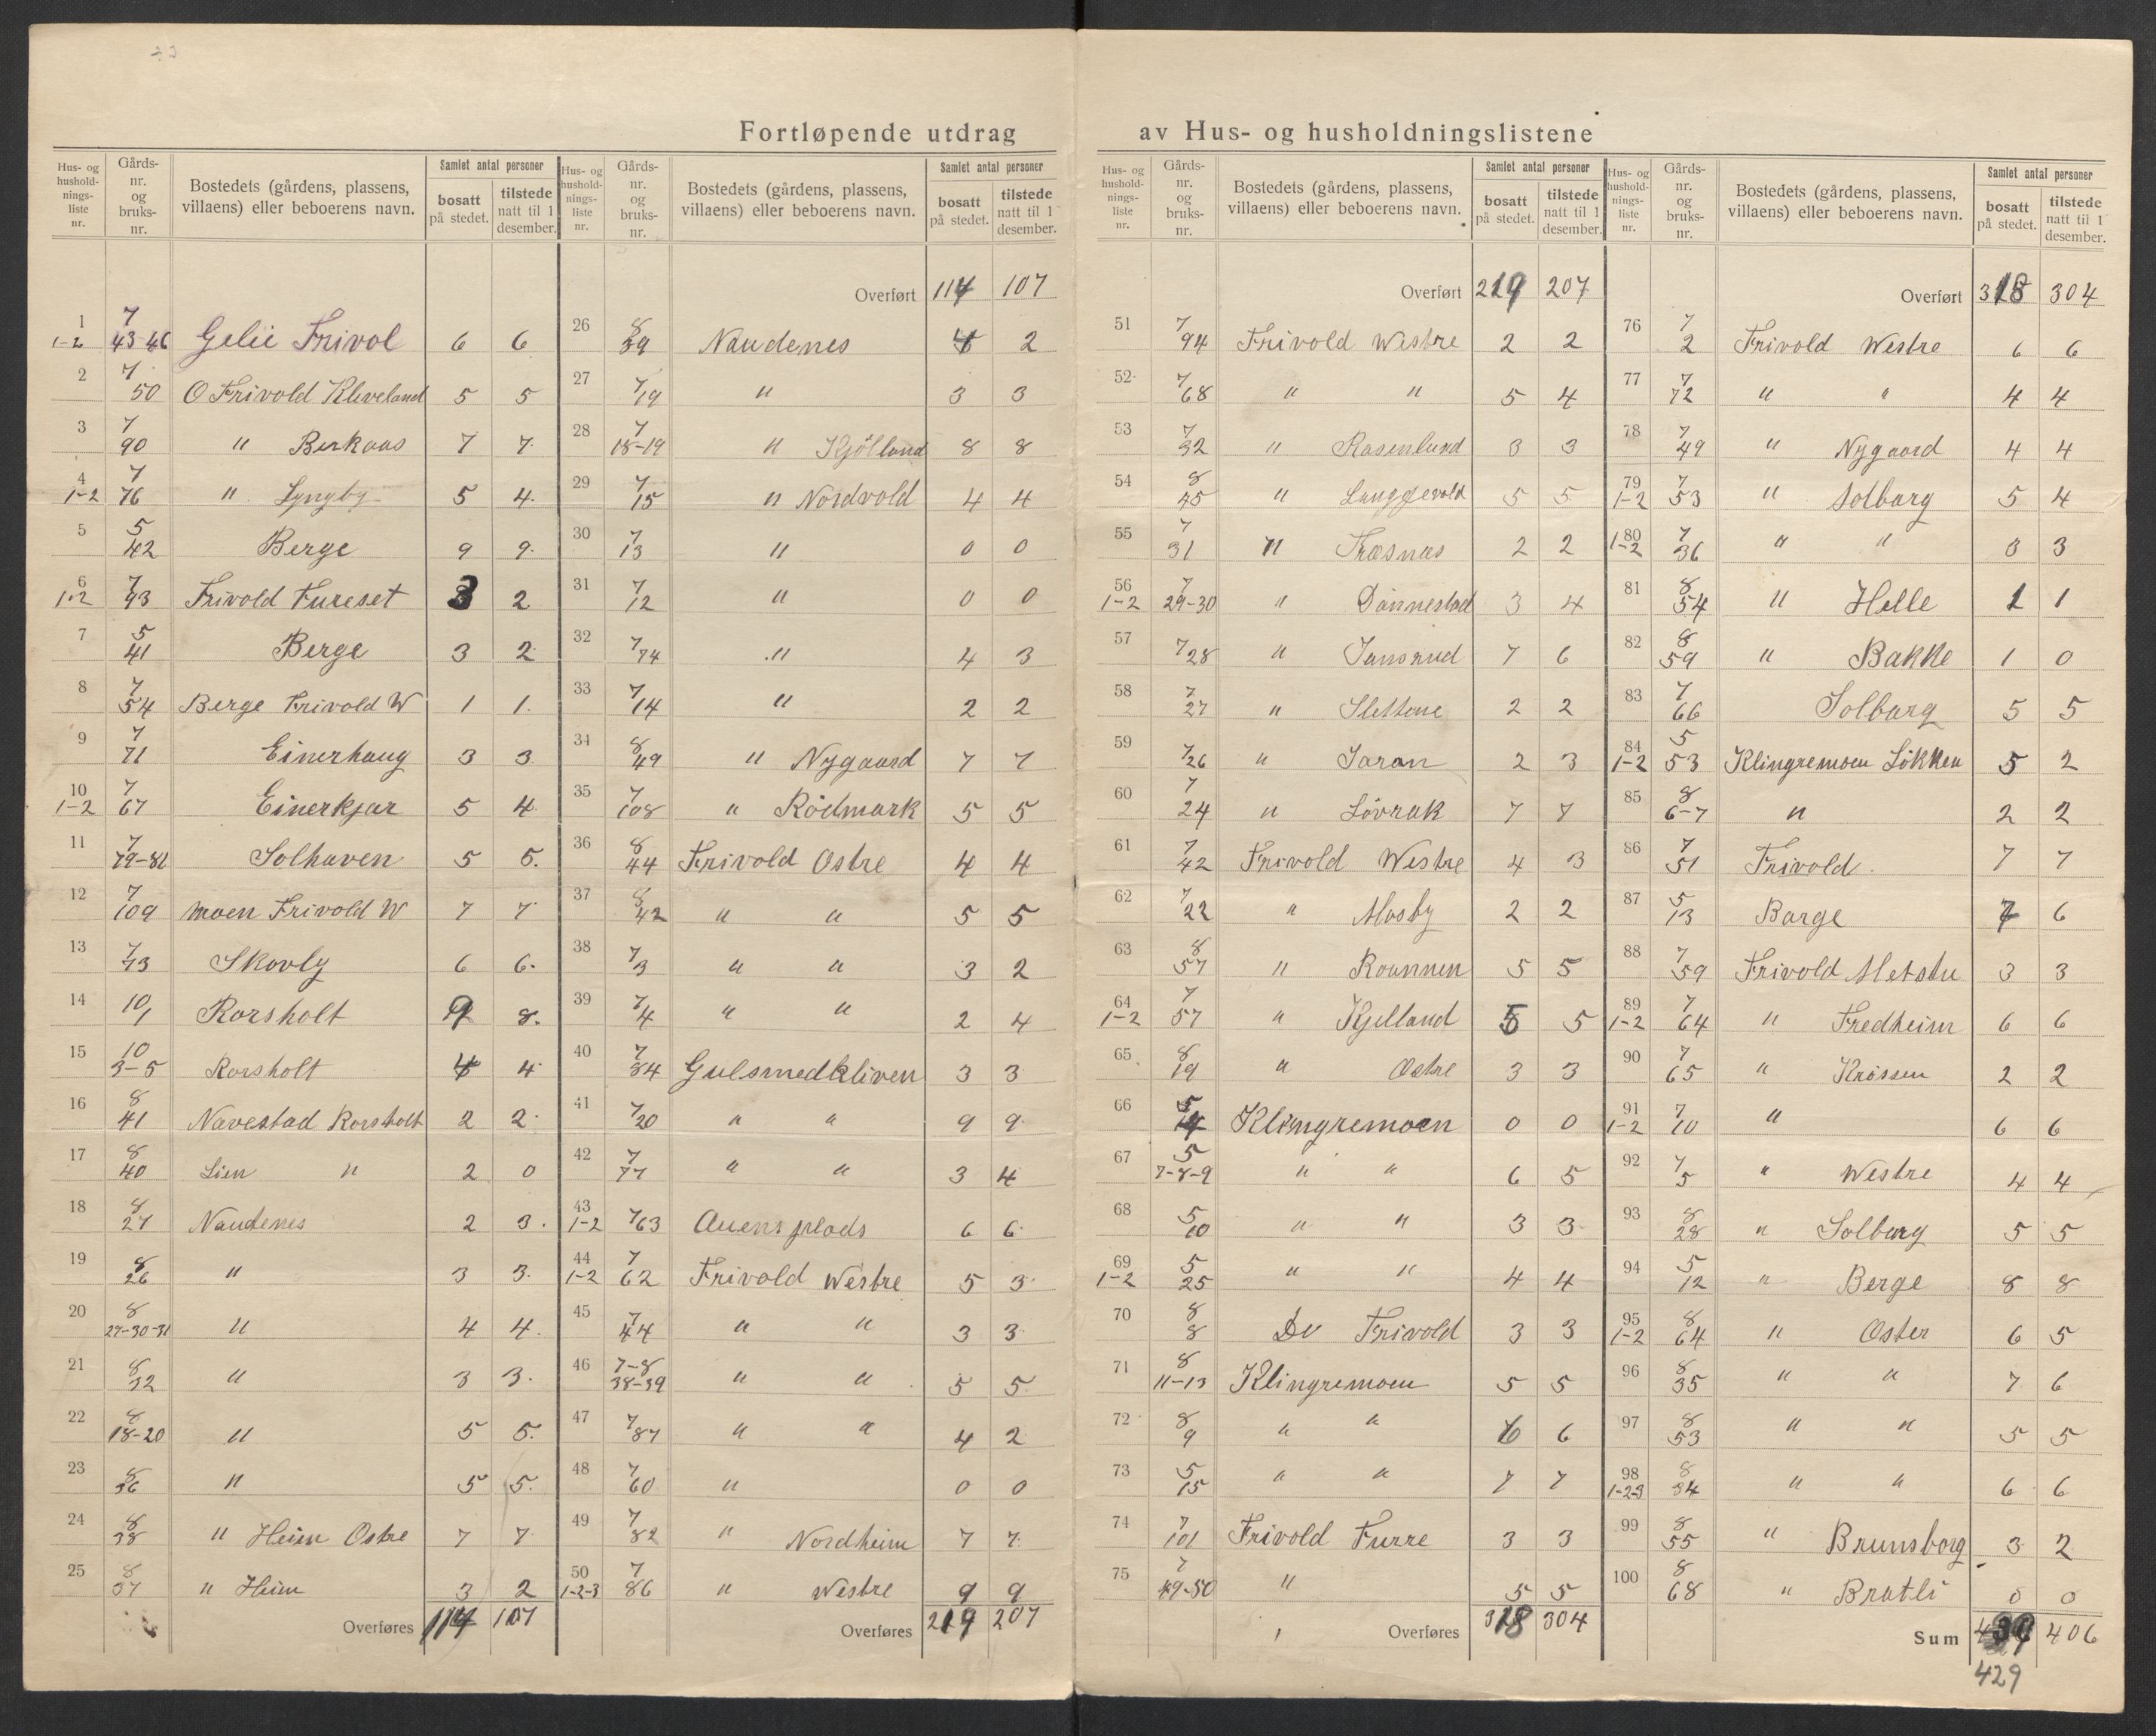 Fortløpende utdrag av Hus- og husholdningslistene
Hus- og husholdnings-liste nr. | Gårds-nr. og bruks-nr. | Bostedets (gårdens, plassens, villaens) eller beboerens navn. | Samlet antal personer bosatt på stedet. | tilstede natt til 1 desember.
1 1-2 | 7 43-46 | Gelie Frivol | 6 | 6
2 | 7 50 | O Frivold Kleveland | 5 | 5
3 | 7 90 | " Berkaas | 7 | 7
4 1-2 | 7 76 | " Lyngby | 5 | 4
5 | 5 42 | Berge | 9 | 9
6 1-2 | 7 93 | Frivold Fureset | 3 | 2
7 | 5 41 | Berge | 3 | 2
8 | 7 54 | Berge Frivold W | 1 | 1
9 | 7 71 | Einerhaug | 3 | 3
10 1-2 | 7 67 | Einerkjær | 5 | 4
11 | 7 | Solhaven | 5 | 5
12 | 7 109 | Moen Frivold W | 7 | 7
13 | 7 73 | Skovly | 6 | 6
14 | 10 1 | Rorsholt | 9 | 8
15 | 10 3-5 | Rorsholt | 4 | 4
16 | 8 41 | Navestad Rorsholt | 2 | 2
17 | 8 40 | Lien " | 2 | 0
18 | 8 27 | Naudenes | 2 | 3
19 | 8 26 | " | 3 | 3
20 | 8 29-30-31 | " | 4 | 4
21 | 8 32 | " | 3 | 3
22 | 8 18-20 | " | 5 | 5
23 | 8 36 | " | 5 | 5
24 | 8 38 | " Heim Ostre | 7 | 7
25 | 8 37 | " Heim | 3 | 2
Overføres 114 107
Hus- og husholdnings-liste nr. | Gårds-nr. og bruks-nr. | Bostedets (gårdens, plassens, villaens) eller beboerens navn. | Samlet antal personer bosatt på stedet. | tilstede natt til 1 desember.
Overført 114 107
26 | 8 39 | Naudenes | 4 | 2
27 | 7 19 | " | 3 | 3
28 | 7 18-19 | " Kjölland | 8 | 8
29 | 7 15 | " Nordvold | 4 | 4
30 | 7 13 | " | 0 | 0
31 | 7 12 | " | 0 | 0
32 | 7 74 | " | 4 | 3
33 | 7 14 | " | 2 | 2
34 | 8 49 | " Nygaard | 7 | 7
35 | 7 108 | " Rödmark | 5 | 5
36 | 8 44 | Frivold Ostre | 4 | 4
37 | 8 42 | " " | 5 | 5
38 | 7 3 | " " | 3 | 2
39 | 7 4 | " " | 2 | 4
40 | 7 34 | Gulsmedkliven | 3 | 3
41 | 7 20 | " " | 9 | 9
42 | 7 77 | " " | 3 | 4
43 1-2 | 7 63 | Auensplads | 6 | 6
44 1-2 | 7 62 | Frivold Westre | 5 | 3
45 | 7 44 | " " | 3 | 3
46 | 7-8 38-39 | " " | 5 | 5
47 | 7 87 | " " | 4 | 2
48 | 7 60 | " | 0 | 0
49 | 7 82 | " Nordheim | 7 | 7
50 1-2-3 | 7 86 | " Westre | 9 | 9
Overføres 219 207
Hus- og husholdnings-liste nr. | Gårds-nr. og bruks-nr. | Bostedets (gårdens, plassens, villaens) eller beboerens navn. | Samlet antal personer bosatt på stedet. | tilstede natt til 1 desember.
Overført 219 207
51 | 7 94 | Frivold Westre | 2 | 2
52 | 7 68 | " " | 5 | 4
53 | 7 32 | " Rasenlund | 3 | 3
54 | 8 45 | " Langgevold | 5 | 5
55 | 7 31 | " Træsnas | 2 | 2
56 1-2 | 7 29-30 | " Dannestad | 3 | 4
57 | 7 28 | " Jansrud | 7 | 6
58 | 7 27 | " Slettene | 2 | 2
59 | 7 26 | " Jaran | 2 | 3
60 | 7 24 | " Lövrak | 7 | 7
61 | 7 42 | Frivold Westre | 4 | 3
62 | 7 22 | " Mosby | 2 | 2
63 | 8 57 | " Roannen | 5 | 5
64 1-2 | 7 57 | " Kjelland | 5 | 5
65 | 8 19 | " Ostre | 3 | 3
66 | 5 14 | Klingremoen | 0 | 0
67 | 5 7-8-9 | " " | 6 | 5
68 | 5 10 | " " | 3 | 3
69 1-2 | 5 25 | " " | 4 | 4
70 | 8 8 | Do Frivold | 3 | 3
71 | 8 11-13 | Klingremoen | 5 | 5
72 | 8 9 | " " | 6 | 6
73 | 5 15 | " " | 7 | 7
74 | 7 101 | Frivold Furre | 3 | 3
75 | 7 49-50 | " | 5 | 5
Overføres 318 304
Hus- og husholdnings-liste nr. | Gårds-nr. og bruks-nr. | Bostedets (gårdens, plassens, villaens) eller beboerens navn. | Samlet antal personer bosatt på stedet. | tilstede natt til 1 desember.
Overført 318 304
76 | 7 2 | Frivold Westre | 6 | 6
77 | 7 72 | " " | 4 | 4
78 | 7 49 | " Nygaard | 4 | 4
79 1-2 | 7 53 | " Solbarg | 5 | 4
80 1-2 | 7 36 | " " | 3 | 3
81 | 8 54 | " Helle | 1 | 1
82 | 8 59 | " Bakke | 1 | 0
83 | 7 66 | Solbarg | 5 | 5
84 1-2 | 5 53 | Klingremoen Lökken | 5 | 2
85 | 8 6-7 | " | 2 | 2
86 | 7 51 | Frivold | 7 | 7
87 | 5 13 | Barge | 7 | 6
88 | 7 59 | Frivold | 3 | 3
89 1-2 | 7 64 | " Fredheim | 6 | 6
90 | 7 65 | " Krossen | 2 | 2
91 1-2 | 7 10 | " | 6 | 6
92 | 7 5 | " Westre | 4 | 4
93 | 8 28 | " Solbarg | 5 | 5
94 | 5 12 | " Berge | 8 | 8
95 1-2 | 8 64 | " Oster | 6 | 5
96 | 8 35 | " " | 7 | 6
97 | 8 53 | " " | 5 | 5
98 1-2-3 | 8 34 | " " | 6 | 6
99 | 8 55 | " Brunsborg | 3 | 2
100 | 8 68 | " Bratli | 0 | 0
Sum 406
429